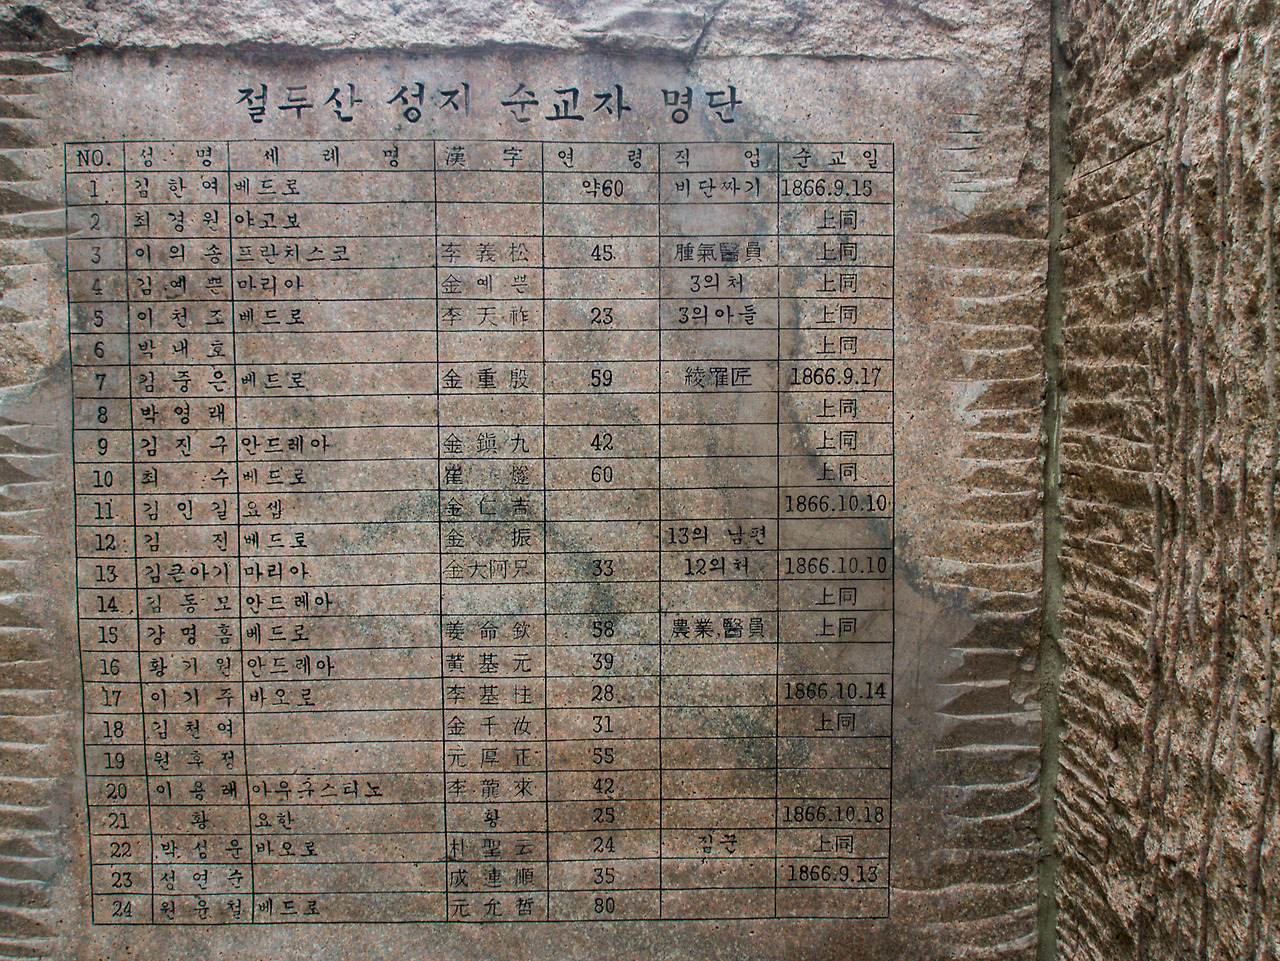 절두산 성지 순교자 명단
NO. 성 명 세 례 명 漢 字 연 령 직 업 순 교 일
1 김 한 여 베드로 약60 비단짜기 1866.9.15
2 최 경 원 야고보 上同
3 이 의 송 프란치스코 李 義 松 45 腫氣醫員 上同
4 김 예 쁜 마리아 金 예 쁜 3의처 上同
5 이 천 조 베드로 李 天 祚 23 3의아들 上同
6 박 내 호 上同
7 김 중 은 베드로 金 重 殷 59 綾羅匠 1866.9.17
8 박 영 래 上同
9 김 진 구 안드레아 金 鎭 九 42 上同
10 최 수 베드로 崔 60 上同
11 김 인 길 요셉 金 仁 吉 1866.10.10
12 김 진 베드로 金 振 13의 남편
13 김큰아기 마리아 金大阿只 33 12의처 1866.10.10
14 김 동 모 안드레아 上同
15 강 명 흠 베드로 姜 命 欽 58 農業,醫員 上同
16 황 기 원 안드레아 黃 基 元 39
17 이 기 주 바오로 李 基 柱 28 1866.10.14
18 김 천 여 金 千 汝 31 上同
19 원 후 정 元 厚 正 55
20 이 용 래 아우구스티노 李 龍 來 42
21 황 요한 황 25 1866.10.18
22 박 성 운 바오로 朴 聖 云 24 짐꾼 上同
23 성 연 순 成 連 順 35 1866.9.13
24 원 윤 철 베드로 元 允 哲 80